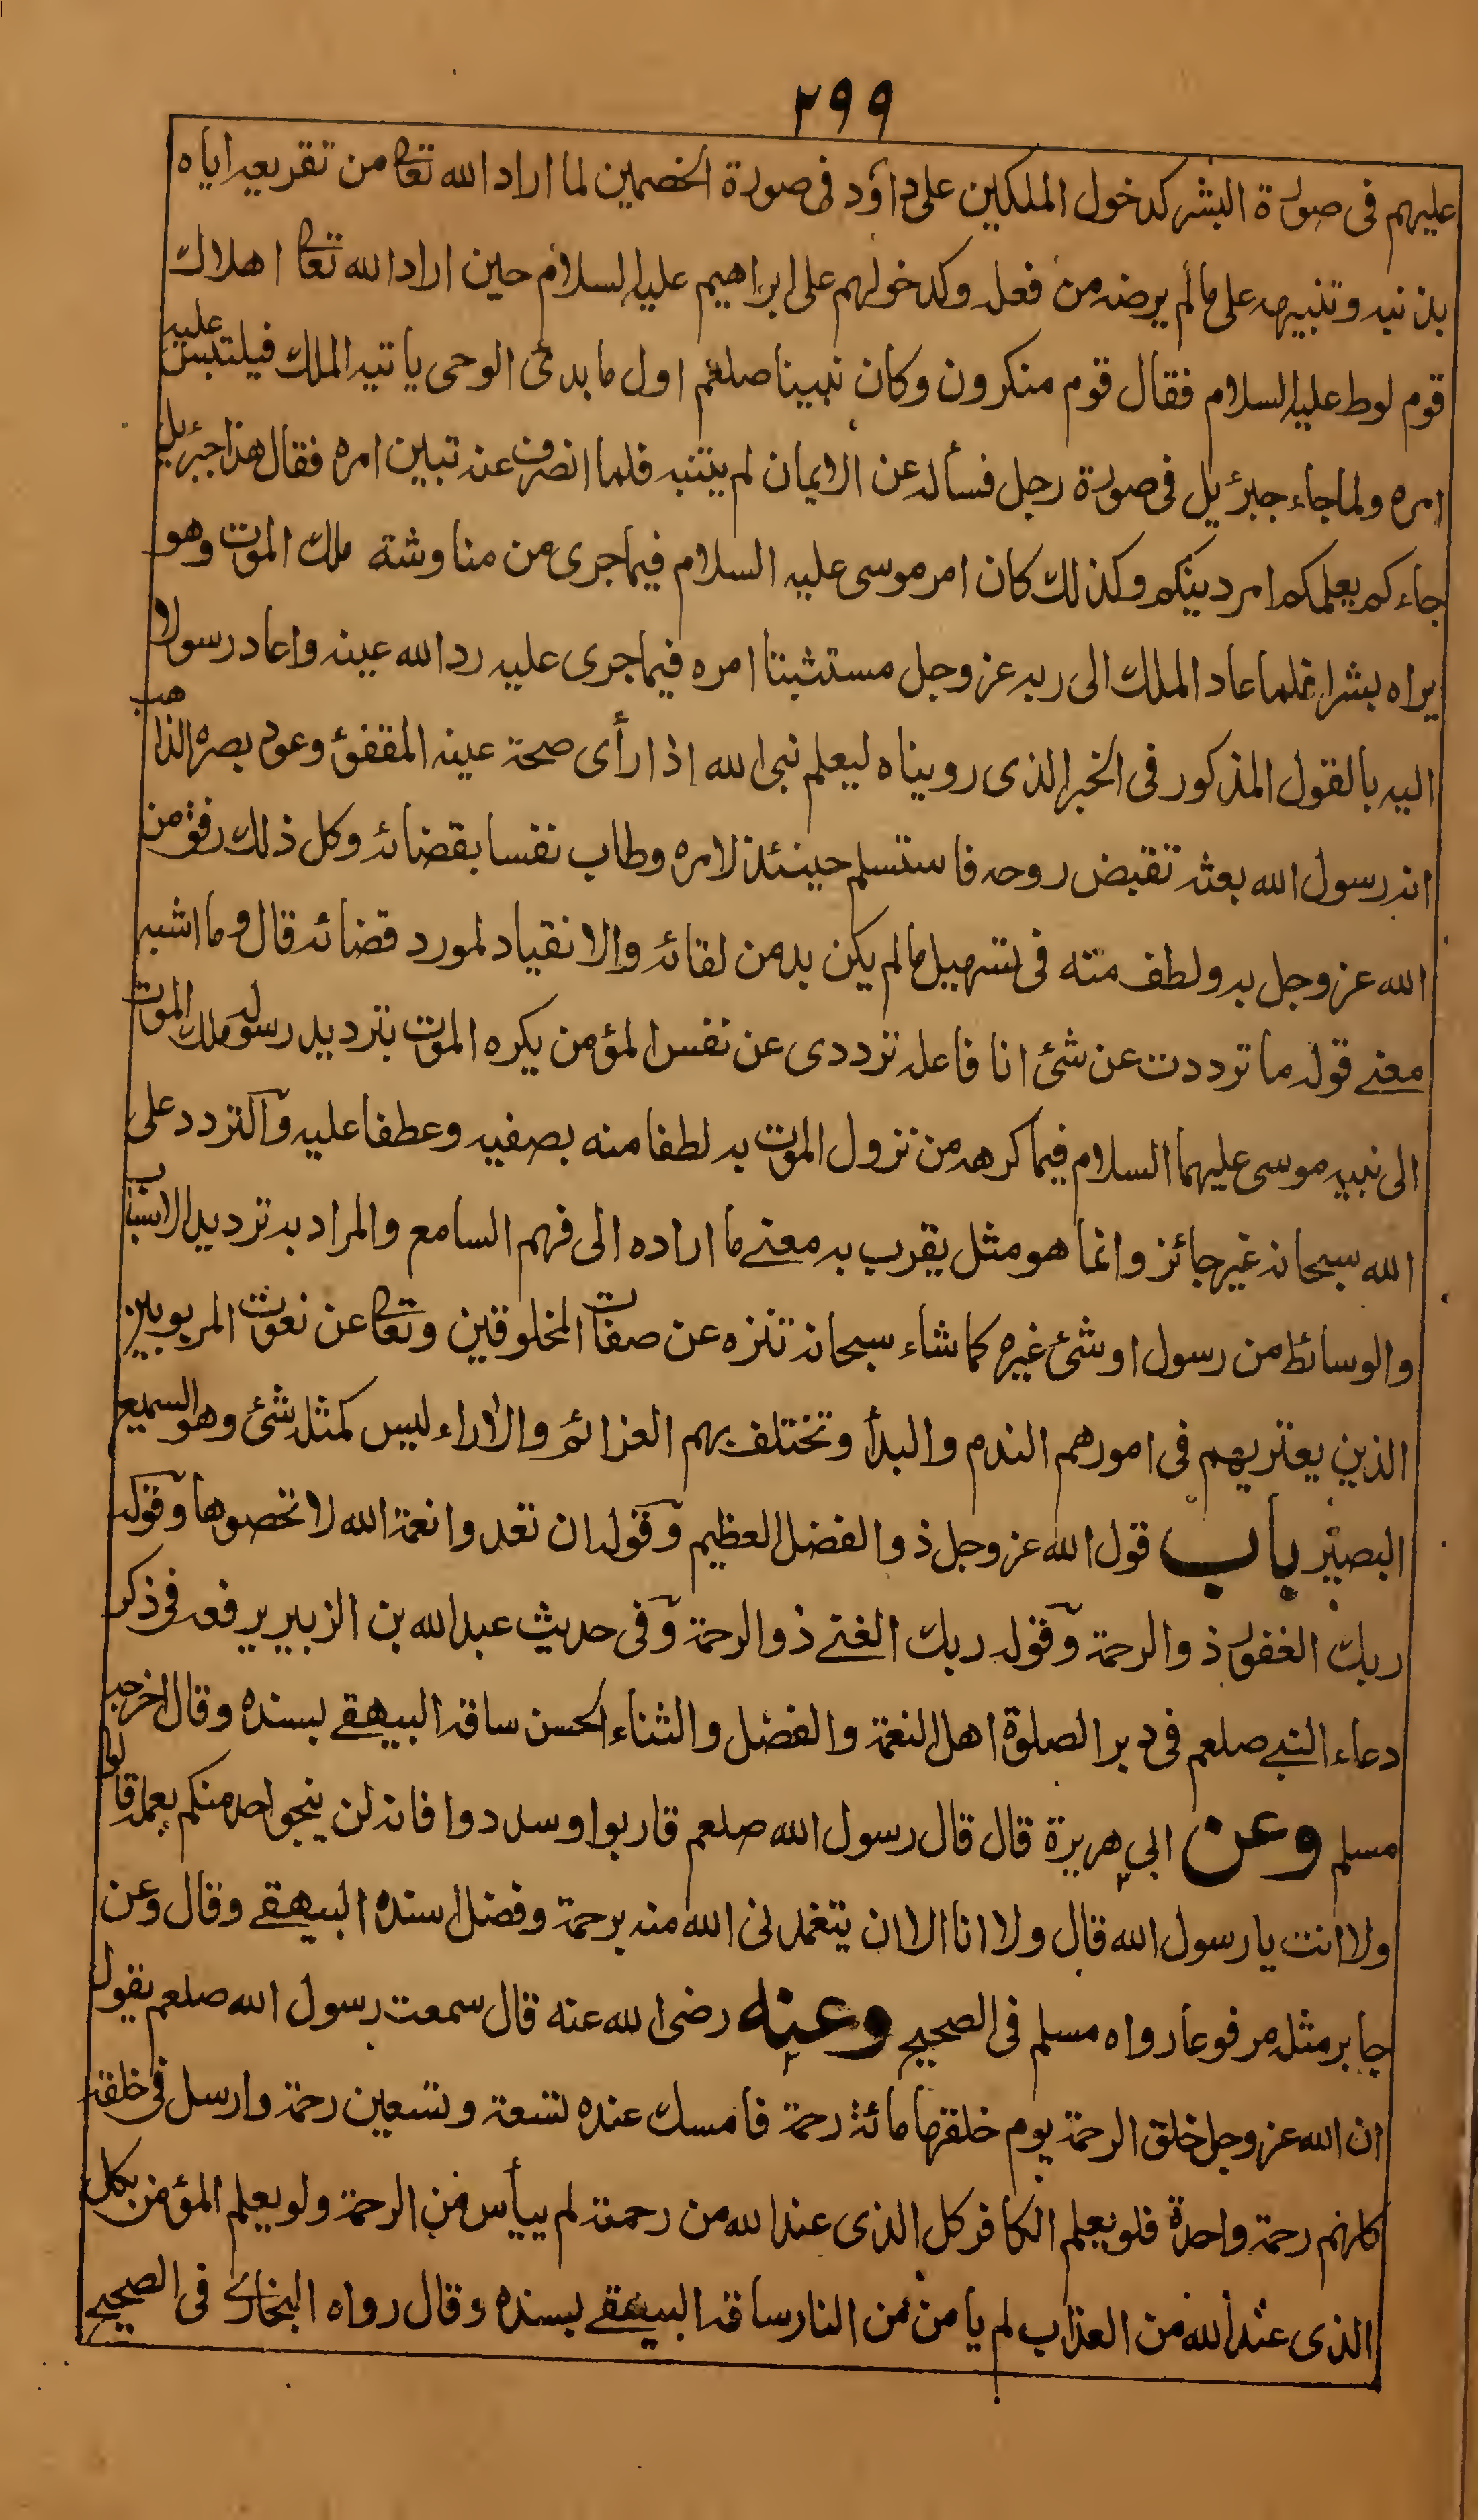 ٢٩٩
عليهم فى صورة البشر كدخول الملكين على داؤد فى صورة الخصمين لما اراد الله تعالى من تقريعه اياه
بذنبه وتنبيهه على مالم يرضه من فعله وكدخولهم على ابراهيم عليه السلام حين اراد الله تعالى اهلاك
قوم لوط عليه السلام فقال قوم منكرون وكان نبينا صلعم اول ما بدئ الوحى ياتيه الملك فيلتبس عليه
امره ولما جاء جبرئيل فى صورة رجل فسأله عن الايمان لم يتنبه فلما انصرف عنه تبين امره فقال هذا جبرئيل
جاءكم يعلمكم امر دينكم وكذلك كان امر موسى عليه السلام فيما جرى من مناوشة ملك الموت وهو
يراه بشرا فلما عاد الملك الى ربه عز وجل مستثبتا امره فيما جرى عليه رد الله عينه واعاد رسولا
اليه بالقول المذكور فى الخبر الذى رويناه ليعلم نبى الله اذا رأى صحة عينه المقفئ وعود بصره الذاهب
انه رسول الله بعثه تقبض روحه فاستسلم حينئذ لامره وطاب نفسا بقضائه وكل ذلك رفق من
الله عز وجل به ولطف منته فى تسهيل مالم يكن بد من لقائه والانقياد لمورد قضائه قال وما اشبه
معنے قوله ما ترددت عن شئ انا فاعله ترددى عن نفس المؤمن يكره الموت بترديد رسوله ملك الموت
الى نبيه موسى عليهما السلام فيما كرهه من نزول الموت به لطفا منه بصفيه وعطفا عليه والتردد على
الله سبحانه غير جائز وانما هو مثل يقرب به معنے ما اراده الى فهم السامع والمراد به ترديد الاسباب
والوسائط من رسول او شئ غيره كما شاء سبحانه تنزه عن صفات المخلوقين وتعالى عن نعوت المربوبين
الذين يعتريهم فى امورهم الندم والبدأ وتختلف بهم العزائم والاراء ليس كمثله شئ وهو السميع
البصير باب قول الله عز وجل ذو الفضل العظيم وقوله ان تعدوا نعمة الله لا تحصوها وقوله
ربك الغفور ذو الرحمة وقوله ربك الغنے ذو الرحمة وفى حديث عبد الله بن الزبير يرفعه فى ذكر
دعاء النبے صلعم فى دبر الصلوة اهل النعمة والفضل والثناء الحسن ساقه البيهقے بسنده وقال اخرجه
مسلم وعن ابى هريرة قال قال رسول الله صلعم قاربوا وسددوا فانه لن ينجو احد منكم بعمله قالوا
ولا انت يا رسول الله قال ولا انا الا ان يتغمدنى الله منه برحمة وفضل اسنده البيهقے وقال وعن
جابر مثله مرفوعا رواه مسلم فى الصحيح وعنه رضى الله عنه قال سمعت رسول الله صلعم يقول
ان الله عز وجل خلق الرحمة يوم خلقها مائة رحمة فامسك عنده تسعة وتسعين رحمة وارسل فى خلقه
كلهم رحمة واحدة فلو يعلم الكافر كل الذى عند الله من رحمة لم ييأس من الرحمة ولو يعلم المؤمن بكل
الذى عند الله من العذاب لم يامن من النار ساقه البيهقے بسنده وقال رواه البخارى فى الصحيح